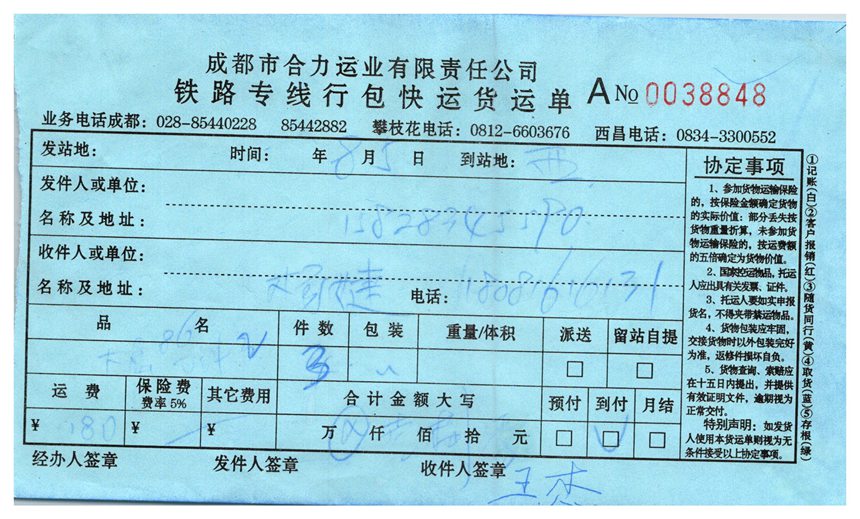 成都市合力运业有限责任公司
铁路专线行包快运货运单 A No 0038848
业务电话成都：028-85440228 85442882 攀枝花电话：0812-6603676 西昌电话：0834-3300552
发站地： 时间： 年 8月5日 到站地：西
发件人或单位：
名称及地址：
收件人或单位：
名称及地址： 电话：
品名 件数 包装 重量/体积 派送 留站自提
3 □ □
运费 保险费 费率5% 其它费用 合计金额大写 预付 到付 月结
¥180 ¥ ¥ 万 仟 佰 拾 元 □ □ □
经办人签章 发件人签章 收件人签章 王杰
协定事项
1、参加货物运输保险
的，按保险金额确定货物
的实际价值：部分丢失按
货物重量折算，未参加货
物运输保险的，按运费额
的五倍确定为货物价值。
2、国家控运物品，托运
人应出具有关发票、证件。
3、托运人要如实申报
货名，不得夹带禁运物品。
4、货物包装应牢固，
交接货物时以外包装完好
为准，返修件损坏自负。
5、货物查询、索赔应
在十五日内提出，并提供
有效证明文件，逾期视为
正常交付。
特别声明：如发货
人使用本货运单则视为无
条件接受以上协定事项。
①记账(白)②客户报销(红)③随货同行(黄)④取货(蓝)⑤存根(绿)